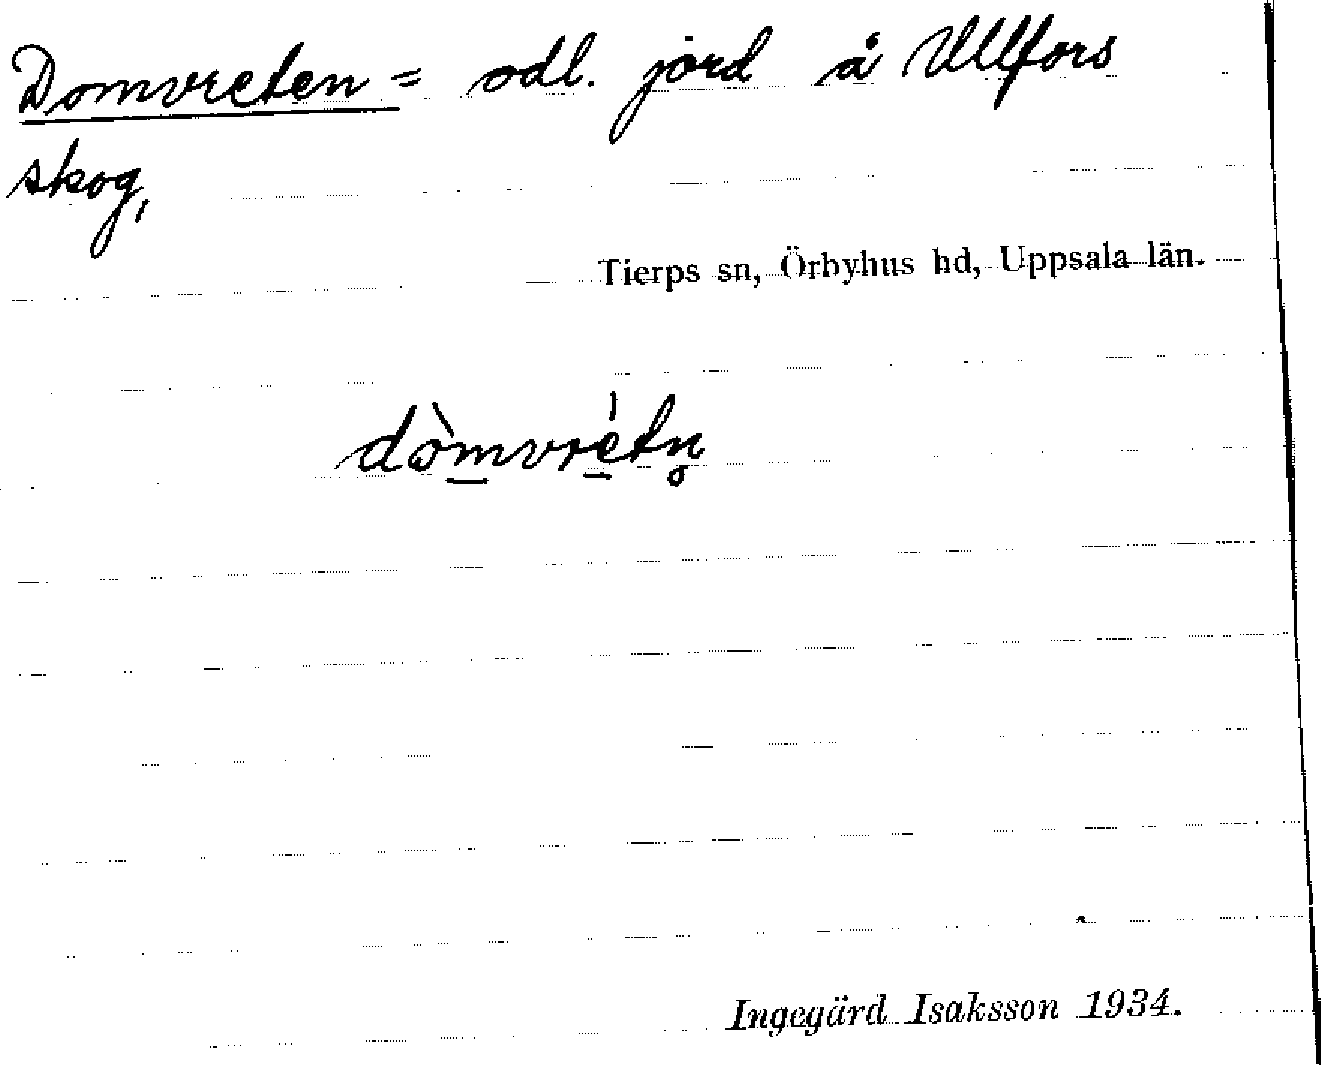 Domvreten = odl. jord å Ullfors
skog,
Tierps sn, Örbyhus hd, Uppsala län.
dòmvrétn̥
Ingegärd Isaksson 1934.